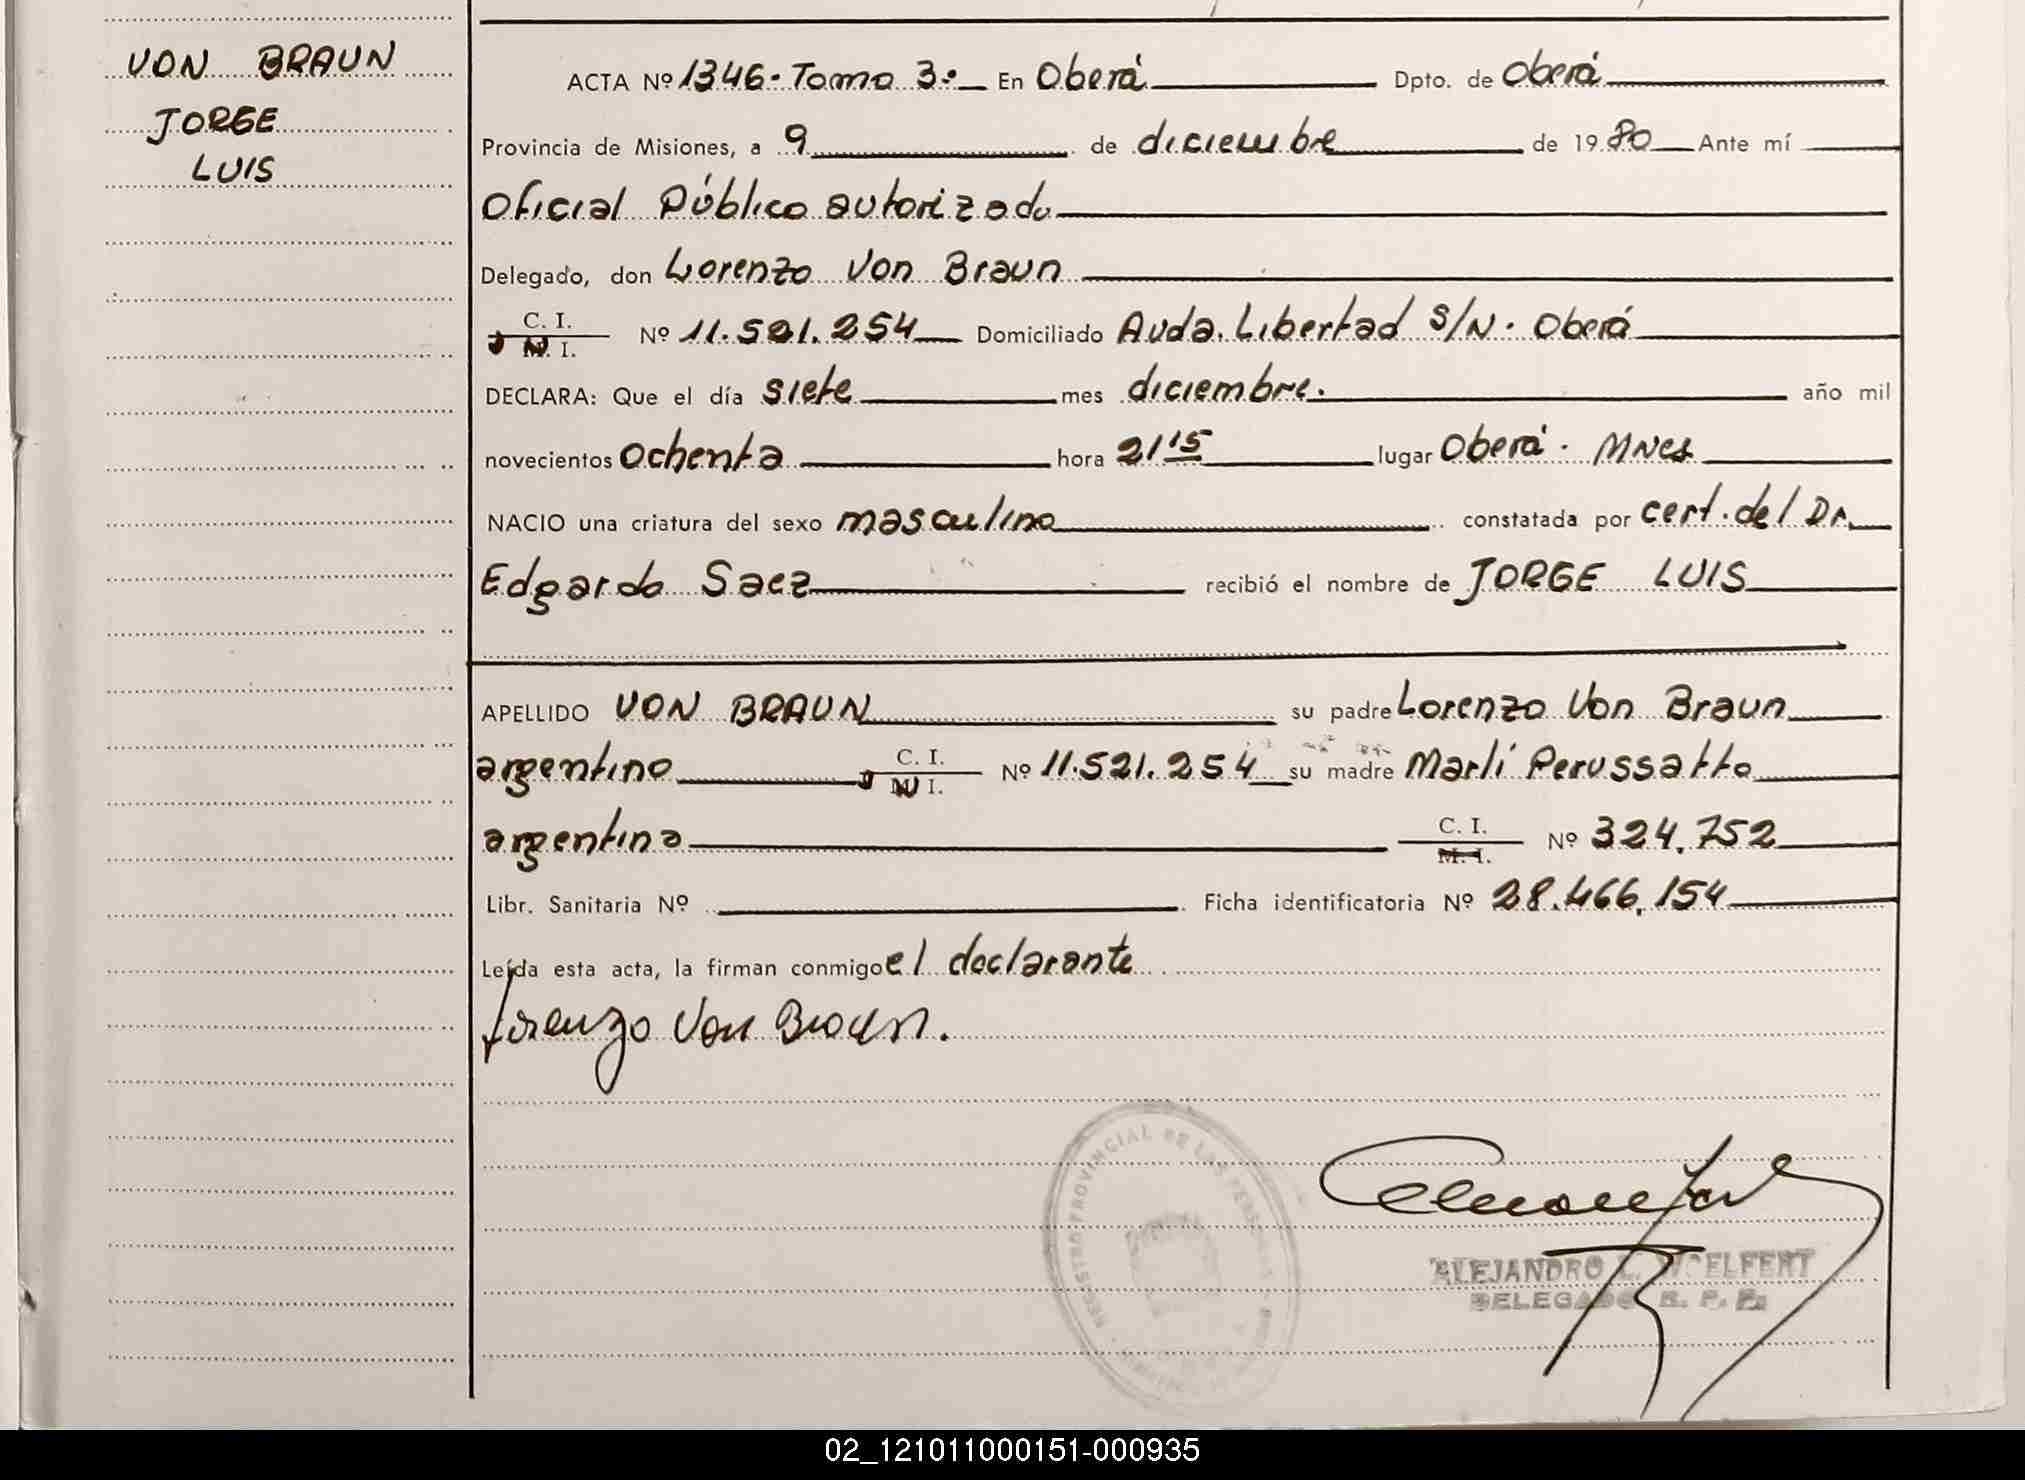 VON BRAUN
JORGE
LUIS
ACTA Nº 1346. Tomo 3º En Oberá Dpto. de Oberá
Provincia de Misiones, a 9 de diciembre de 1980 Ante mí
Oficial Público autorizado
Delegado, don Lorenzo Von Braun
C. I.
M. I. Nº 11.521.254 Domiciliado Avda. Libertad S/N. Oberá
DECLARA: Que el día siete mes diciembre. año mil
novecientos ochenta hora 21 15 lugar Oberá. Mnes
NACIO una criatura del sexo masculino constatada por cert. del Dr.
Edgardo Saez recibió el nombre de JORGE LUIS
APELLIDO VON BRAUN su padre Lorenzo Von Braun
argentino C. I. M. I. Nº 11.521.254 su madre Marlí Perussatto
argentina C. I. M. I. Nº 324.752
Libr. Sanitaria Nº Ficha identificatoria Nº 28.466.154
Leída esta acta, la firman conmigo el declarante
Lorenzo Von Braun.
REGISTRO PROVINCIAL DE LAS PERSONAS
ALEJANDRO L. WOELFERT
DELEGADO R. P. P.
02_121011000151-000935